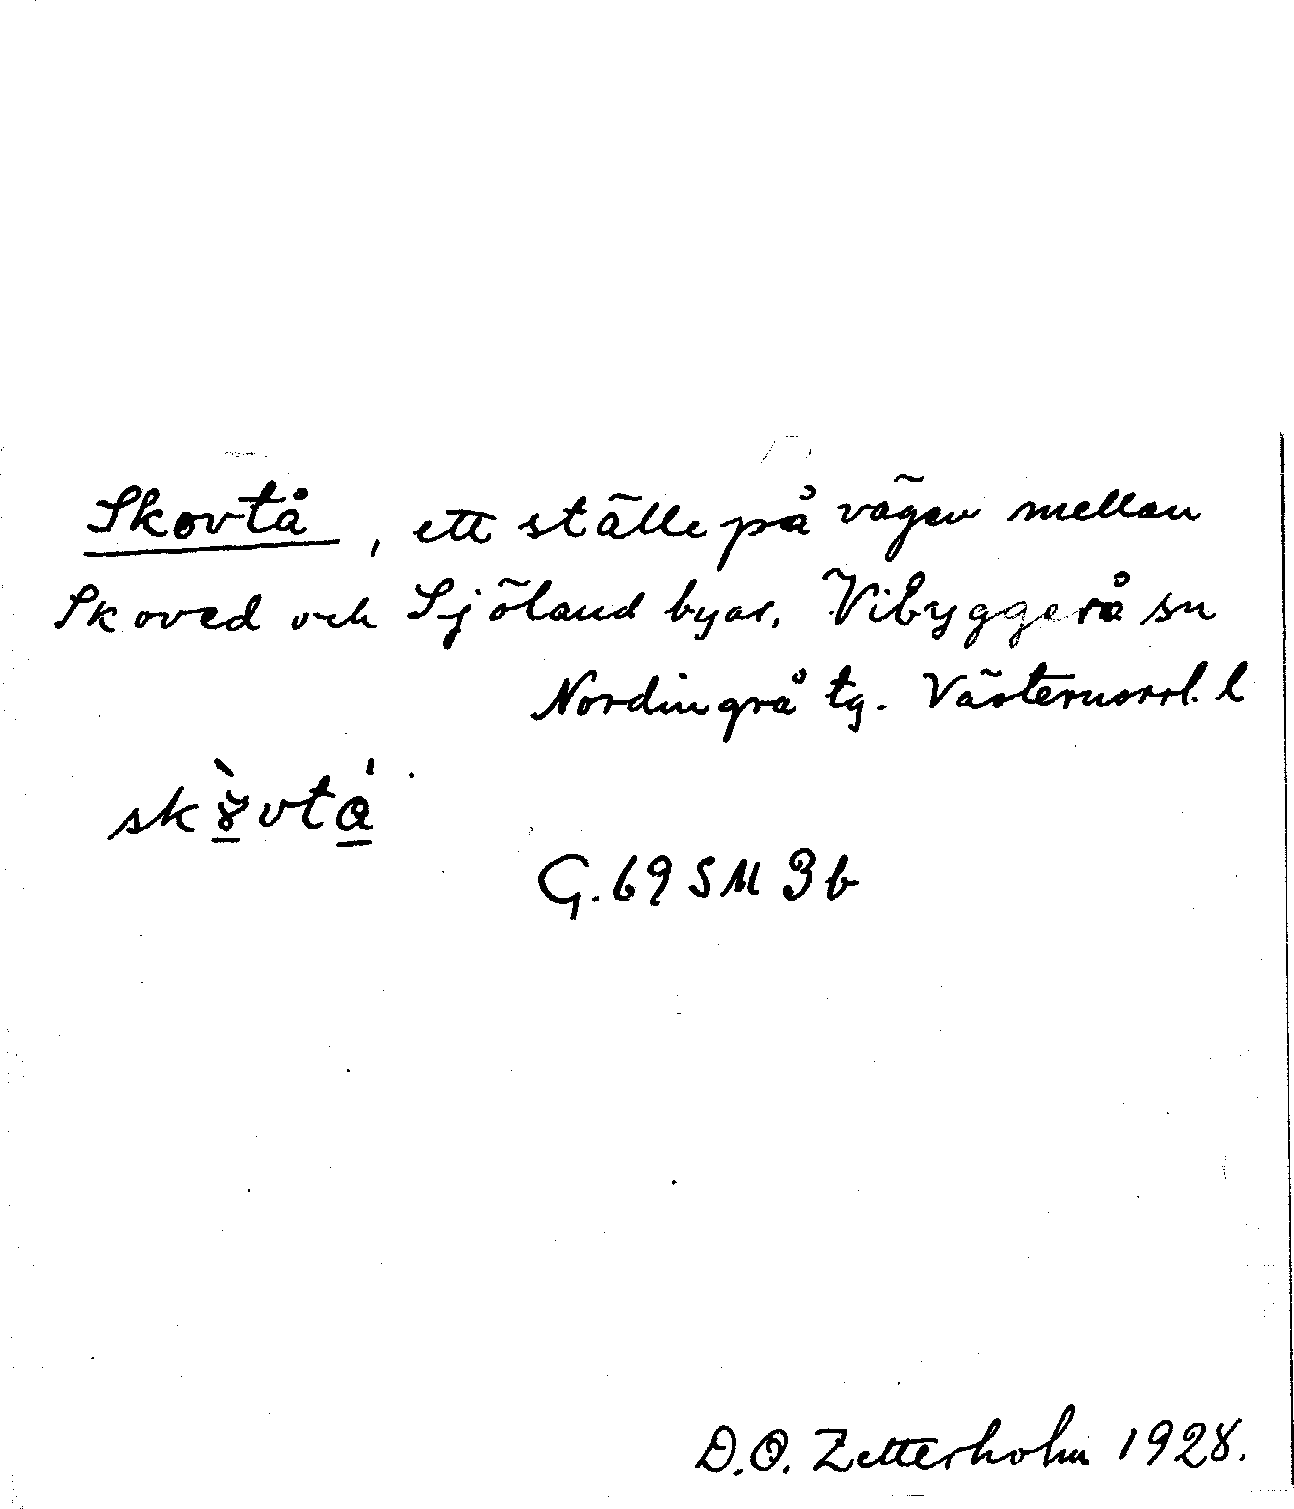 Skovtå, ett ställe på vägen mellan
Skoved och Sjöland byar, Vibyggerå sn
Nordingrå tg. Västernorrl. l
G. 69 SM 3b
D.O. Zetterholm 1928.